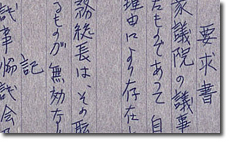 要求書
家議院の議事
たものであって自
理由により存在し
務総長は、その
るものが無効な
記
議事協議会